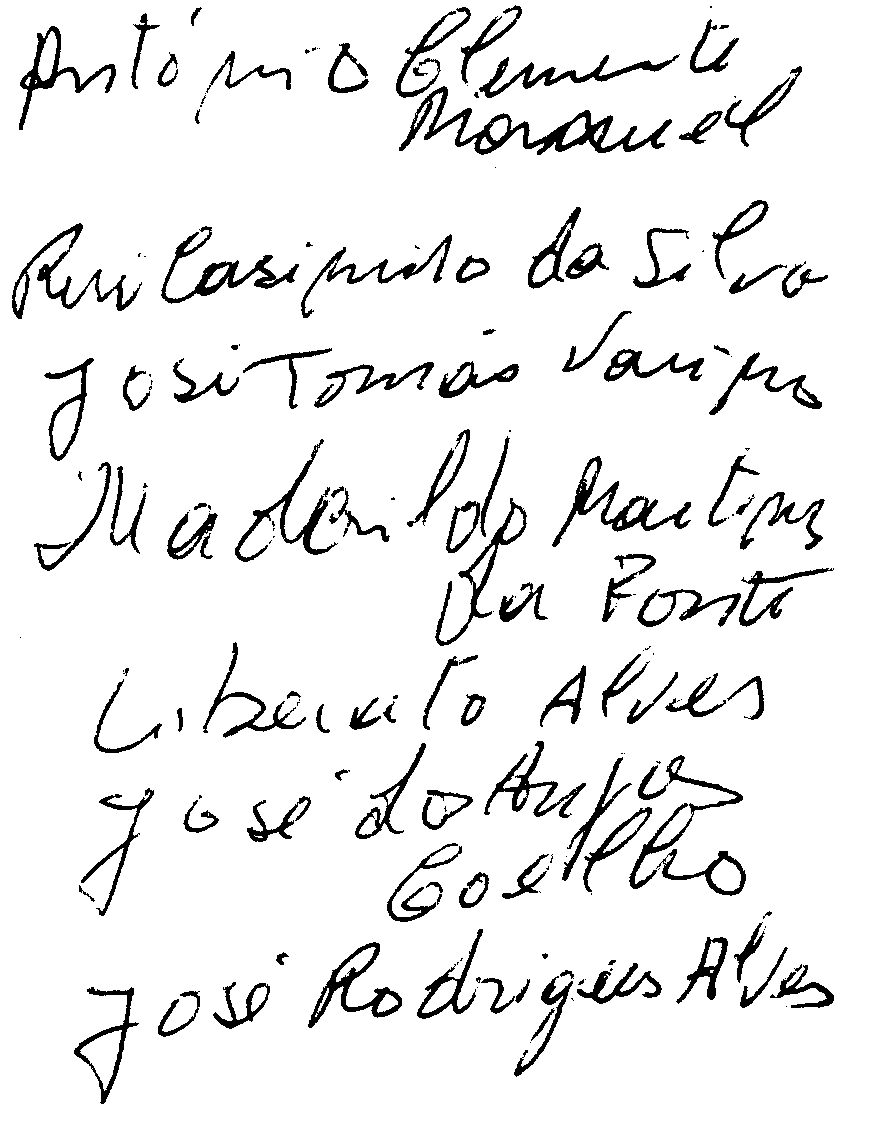 António Clemente
Manuel
Rui Casimiro da Silva
José Tomás
Maderildo Martins
da Fonte
Liberato Alves
José dos Anjos
Coelho
José Rodrigues Alves